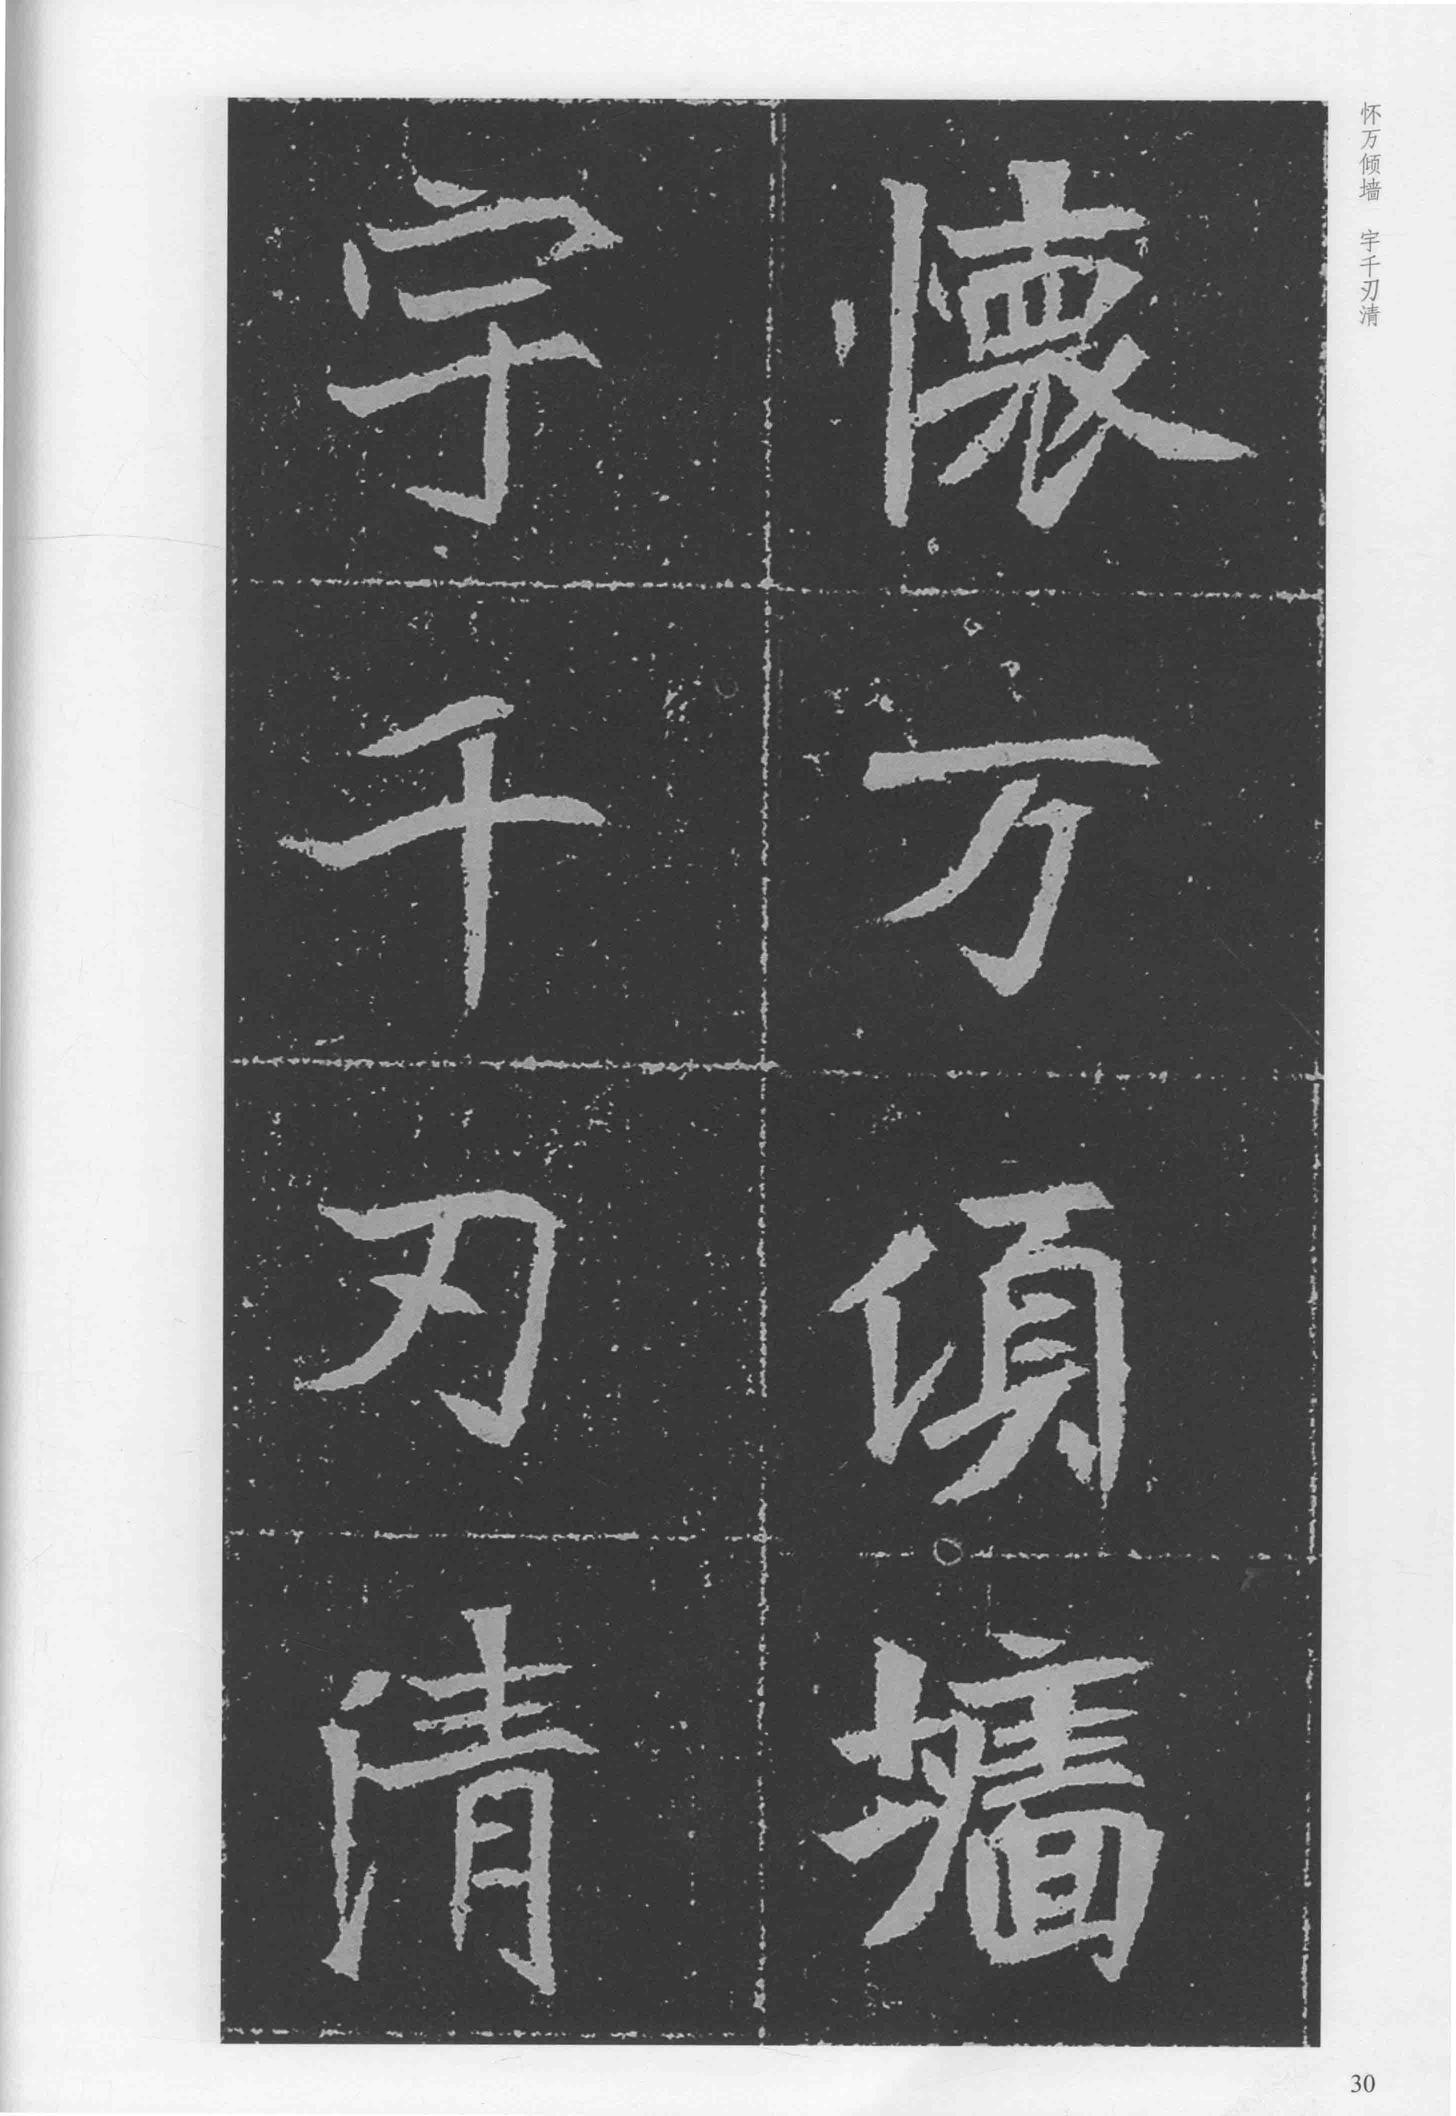 怀万倾墙 宇千刃清
懷万傾墻
宇千刃清
30